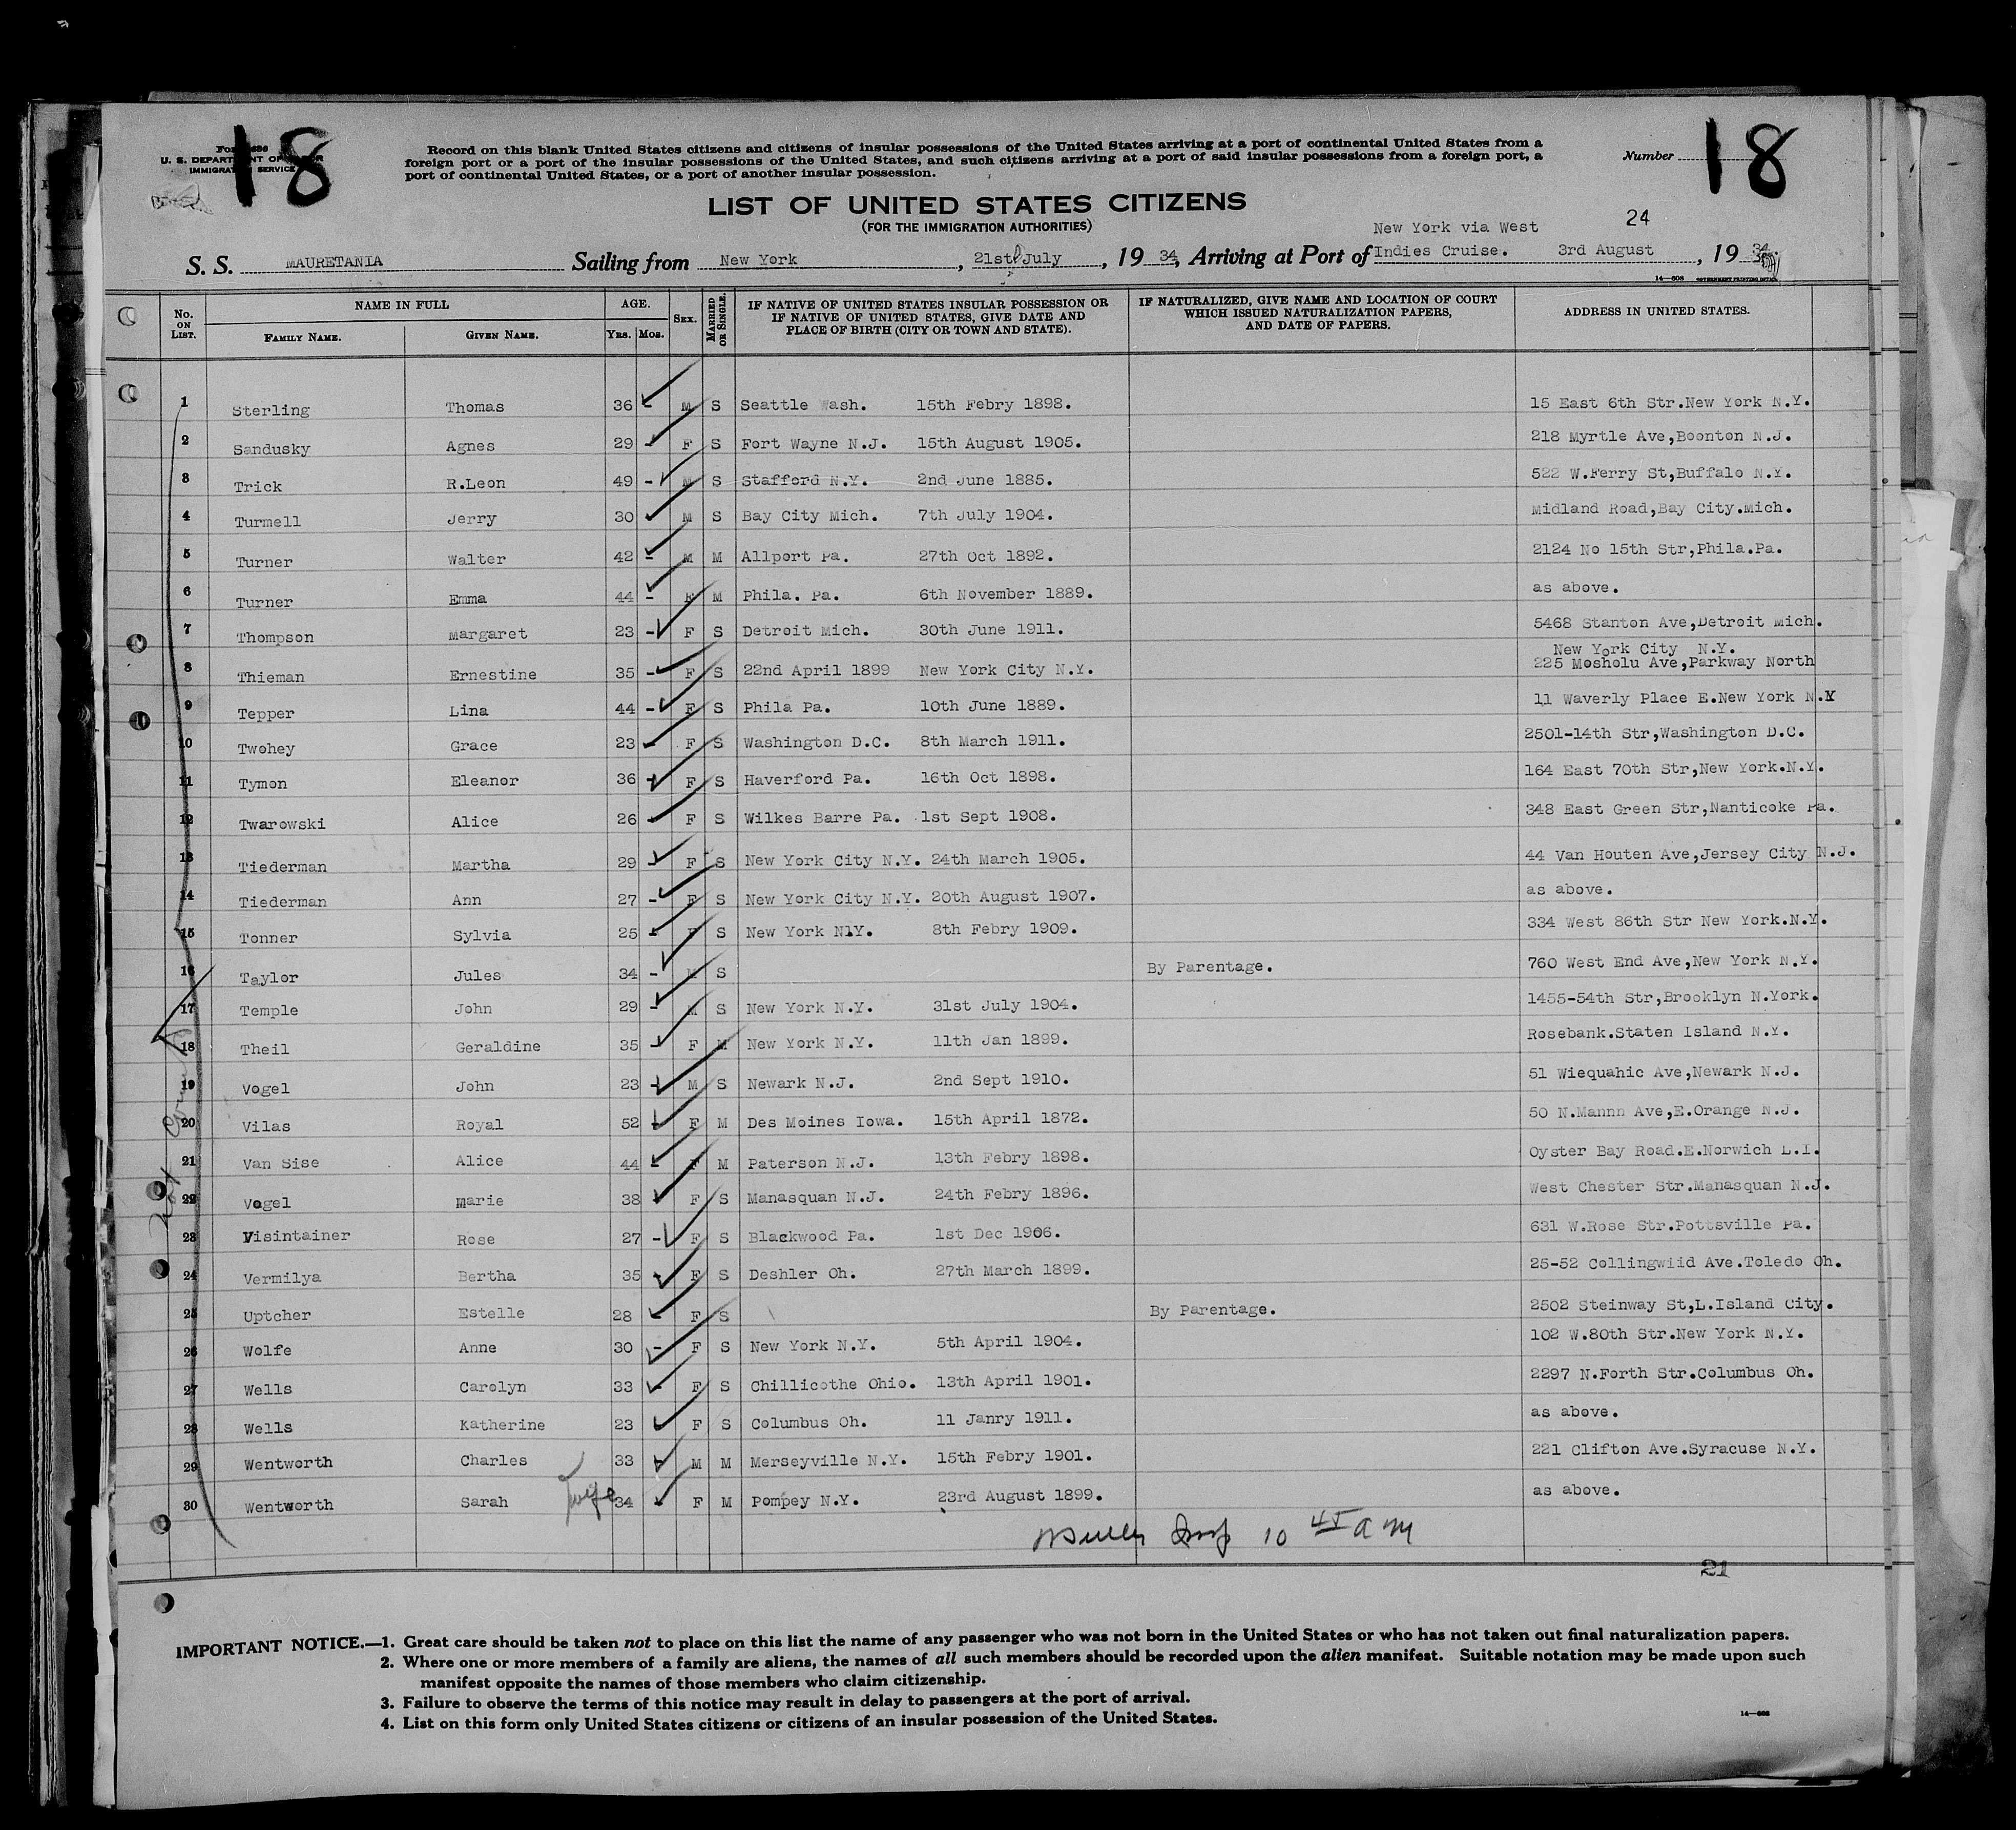 18
18
Form 686
U. S. DEPARTMENT OF LABOR
IMMIGRATION SERVICE
Record on this blank United States citizens and citizens of insular possessions of the United States arriving at a port of continental United States from a
foreign port or a port of the insular possessions of the United States, and such citizens arriving at a port of said insular possessions from a foreign port, a
port of continental United States, or a port of another insular possession.
Number
LIST OF UNITED STATES CITIZENS
(FOR THE IMMIGRATION AUTHORITIES)
24
New York via West
S. S. MAURETANIA Sailing from New York, 21st July, 19 34, Arriving at Port of Indies Cruise. 3rd August, 19 34
14—608 GOVERNMENT PRINTING OFFICE
No. ON LIST. NAME IN FULL FAMILY NAME. GIVEN NAME. AGE. YRS. MOS. SEX. MARRIED OR SINGLE. IF NATIVE OF UNITED STATES INSULAR POSSESSION OR IF NATIVE OF UNITED STATES, GIVE DATE AND PLACE OF BIRTH (CITY OR TOWN AND STATE). IF NATURALIZED, GIVE NAME AND LOCATION OF COURT WHICH ISSUED NATURALIZATION PAPERS, AND DATE OF PAPERS. ADDRESS IN UNITED STATES.
1 Sterling Thomas 36 - M S Seattle Wash. 15th Febry 1898. 15 East 6th Str.New York N.Y.
2 Sandusky Agnes 29 - F S Fort Wayne N.J. 15th August 1905. 218 Myrtle Ave,Boonton N.J.
3 Trick R.Leon 49 - M S Stafford N.Y. 2nd June 1885. 522 W.Ferry St,Buffalo N.Y.
4 Turmell Jerry 30 - M S Bay City Mich. 7th July 1904. Midland Road,Bay City.Mich.
5 Turner Walter 42 - M M Allport Pa. 27th Oct 1892. 2124 No 15th Str,Phila.Pa.
6 Turner Emma 44 - F M Phila. Pa. 6th November 1889. as above.
7 Thompson Margaret 23 - F S Detroit Mich. 30th June 1911. 5468 Stanton Ave,Detroit Mich.
New York City N.Y.
8 Thieman Ernestine 35 - F S 22nd April 1899 New York City N.Y. 225 Mosholu Ave,Parkway North
9 Tepper Lina 44 - F S Phila Pa. 10th June 1889. 11 Waverly Place E.New York N.Y
10 Twohey Grace 23 - F S Washington D.C. 8th March 1911. 2501-14th Str,Washington D.C.
11 Tymon Eleanor 36 - F S Haverford Pa. 16th Oct 1898. 164 East 70th Str,New York.N.Y.
12 Twarowski Alice 26 - F S Wilkes Barre Pa. 1st Sept 1908. 348 East Green Str,Nanticoke Pa.
13 Tiederman Martha 29 - F S New York City N.Y. 24th March 1905. 44 Van Houten Ave,Jersey City N.J.
14 Tiederman Ann 27 - F S New York City N.Y. 20th August 1907. as above.
15 Tonner Sylvia 25 - F S New York N1Y. 8th Febry 1909. 334 West 86th Str New York.N.Y.
16 Taylor Jules 34 - M S By Parentage. 760 West End Ave,New York N.Y.
17 Temple John 29 - M S New York N.Y. 31st July 1904. 1455-54th Str,Brooklyn N.York.
18 Theil Geraldine 35 - F M New York N.Y. 11th Jan 1899. Rosebank.Staten Island N.Y.
19 Vogel John 23 - M S Newark N.J. 2nd Sept 1910. 51 Wiequahic Ave,Newark N.J.
20 Vilas Royal 52 - F M Des Moines Iowa. 15th April 1872. 50 N.Mannn Ave,E.Orange N.J.
21 Van Sise Alice 44 - F M Paterson N.J. 13th Febry 1898. Oyster Bay Road.E.Norwich L.I.
22 Vogel Marie 38 - F S Manasquan N.J. 24th Febry 1896. West Chester Str.Manasquan N.J.
23 Visintainer Rose 27 - F S Blackwood Pa. 1st Dec 1906. 631 W.Rose Str.Pottsville Pa.
24 Vermilya Bertha 35 - F S Deshler Oh. 27th March 1899. 25-52 Collingwiid Ave.Toledo Oh.
25 Uptcher Estelle 28 - F S By Parentage. 2502 Steinway St,L.Island City.
26 Wolfe Anne 30 - F S New York N.Y. 5th April 1904. 102 W.80th Str.New York N.Y.
27 Wells Carolyn 33 - F S Chillicothe Ohio. 13th April 1901. 2297 N.Forth Str.Columbus Oh.
28 Wells Katherine 23 - F S Columbus Oh. 11 Janry 1911. as above.
29 Wentworth Charles 33 - M M Merseyville N.Y. 15th Febry 1901. 221 Clifton Ave.Syracuse N.Y.
30 Wentworth Sarah wife 34 - F M Pompey N.Y. 23rd August 1899. as above.
Insp 10 45 a m
21
IMPORTANT NOTICE.—1. Great care should be taken not to place on this list the name of any passenger who was not born in the United States or who has not taken out final naturalization papers.
2. Where one or more members of a family are aliens, the names of all such members should be recorded upon the alien manifest. Suitable notation may be made upon such
manifest opposite the names of those members who claim citizenship.
3. Failure to observe the terms of this notice may result in delay to passengers at the port of arrival.
4. List on this form only United States citizens or citizens of an insular possession of the United States.
14—608